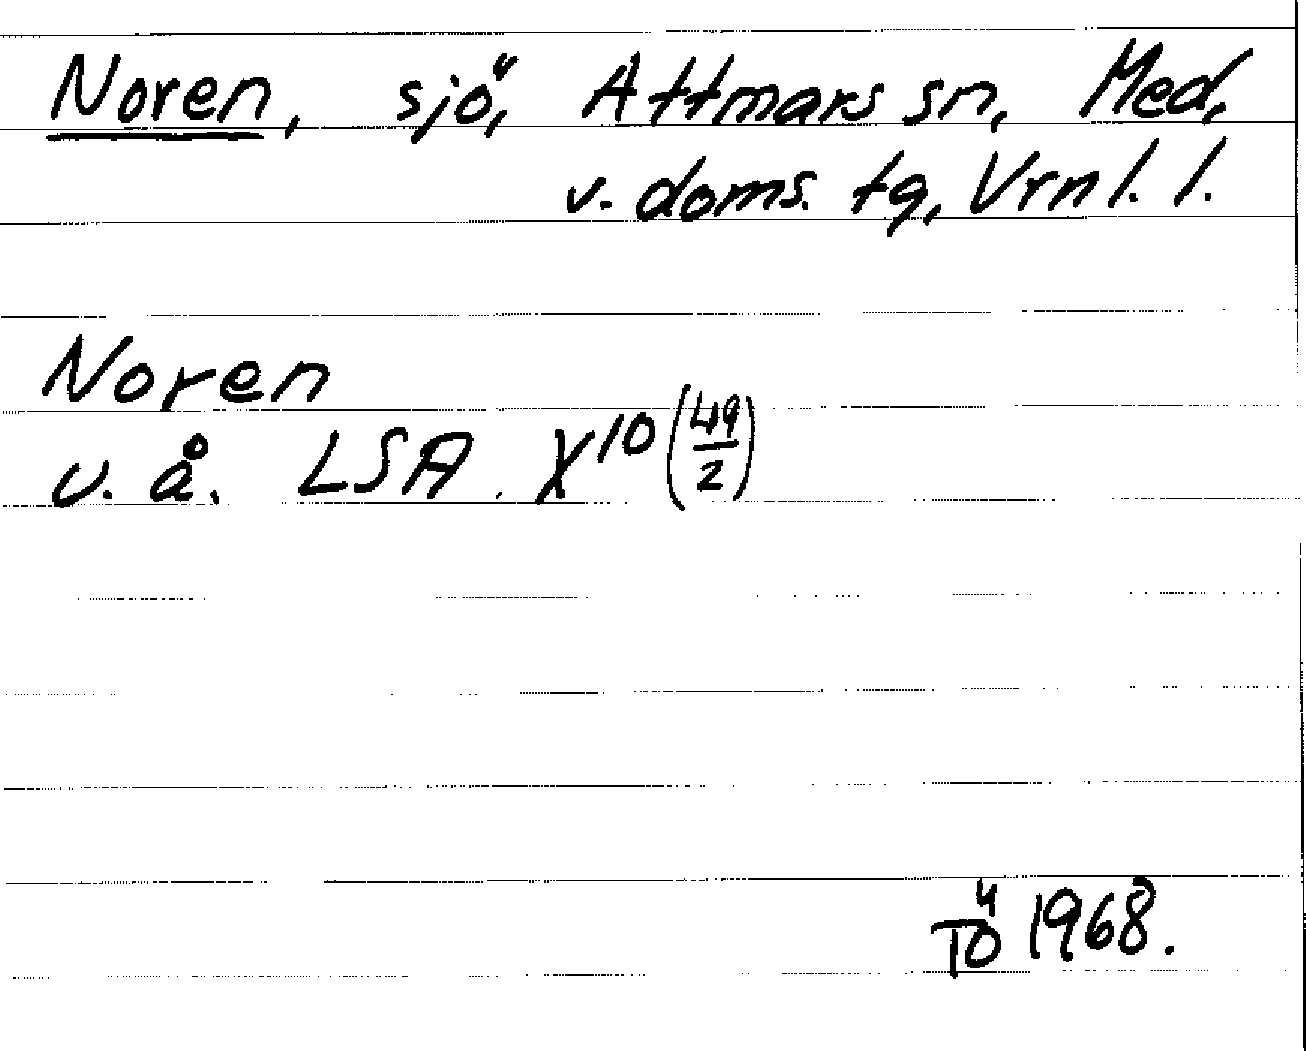 Noren, sjö, Attmars sn, Med.
v. doms. tg, Vrnl. l.
Noren
u. å. LSA. X¹⁰ (49/2)
4/10 1968.